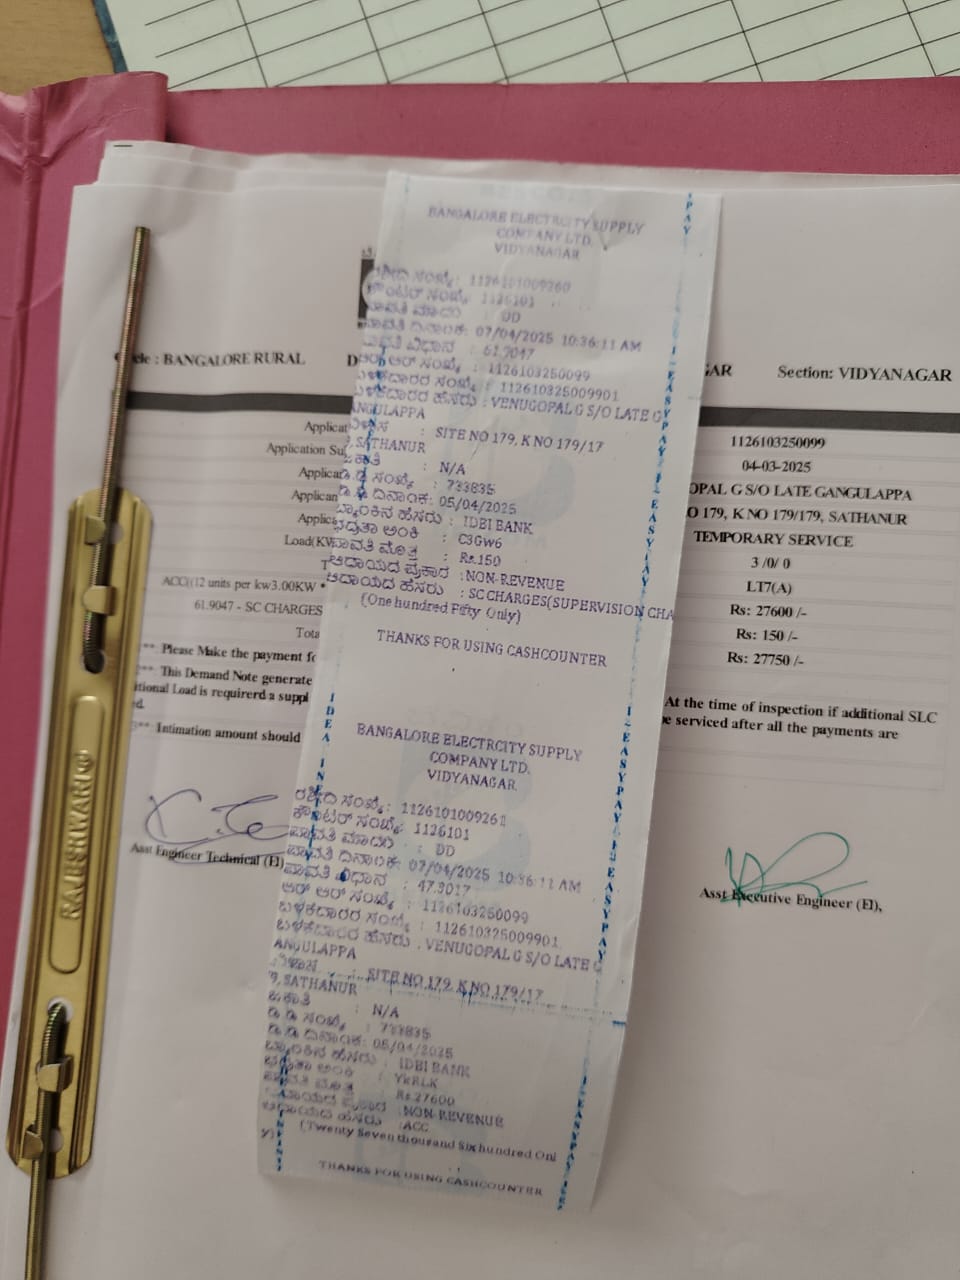 BANGALORE ELECTRCITY SUPPLY
COMPANY LTD.
VIDYANAGAR
ರಶೀದಿ ಸಂಖ್ಯೆ: 1126101009260
ಕೌಂಟರ್ ಸಂಖ್ಯೆ: 1126101
ಪಾವತಿ ಮಾದರಿ : DD
ಪಾವತಿ ದಿನಾಂಕ: 07/04/2025 10:36:11 AM
ಪಾವತಿ ವಿಧಾನ : 61.9047
ಆರ್ ಆರ್ ಸಂಖ್ಯೆ : 1126103250099
ಬಳಕೆದಾರರ ಸಂಖ್ಯೆ : 112610325009901
ಬಳಕೆದಾರರ ಹೆಸರು : VENUGOPAL G S/O LATE G
ANGULAPPA
ವಿಳಾಸ : SITE NO 179, K NO 179/17
9, SATHANUR
ಜಕಾತಿ : N/A
ಡಿ.ಡಿ ಸಂಖ್ಯೆ : 733835
ಡಿ.ಡಿ ದಿನಾಂಕ: 05/04/2025
ಬ್ಯಾಂಕಿನ ಹೆಸರು : IDBI BANK
ಭದ್ರತಾ ಅಂಕಿ : C3GW6
ಪಾವತಿ ಮೊತ್ತ : Rs.150
ಆದಾಯದ ಪ್ರಕಾರ : NON-REVENUE
ಆದಾಯದ ಹೆಸರು : SC CHARGES(SUPERVISION CHA
(One hundred Fifty Only)
THANKS FOR USING CASHCOUNTER
BANGALORE ELECTRCITY SUPPLY
COMPANY LTD.
VIDYANAGAR
ರಶೀದಿ ಸಂಖ್ಯೆ: 1126101009261
ಕೌಂಟರ್ ಸಂಖ್ಯೆ: 1126101
ಪಾವತಿ ಮಾದರಿ : DD
ಪಾವತಿ ದಿನಾಂಕ: 07/04/2025 10:36:11 AM
ಪಾವತಿ ವಿಧಾನ : 47.3017
ಆರ್ ಆರ್ ಸಂಖ್ಯೆ : 1126103250099
ಬಳಕೆದಾರರ ಸಂಖ್ಯೆ : 112610325009901
ಬಳಕೆದಾರರ ಹೆಸರು : VENUGOPAL G S/O LATE G
ANGULAPPA
ವಿಳಾಸ : SITE NO 179, K NO 179/17
9, SATHANUR
ಜಕಾತಿ : N/A
ಡಿ.ಡಿ ಸಂಖ್ಯೆ : 733835
ಡಿ.ಡಿ ದಿನಾಂಕ: 05/04/2025
ಬ್ಯಾಂಕಿನ ಹೆಸರು : IDBI BANK
ಭದ್ರತಾ ಅಂಕಿ : YkRLK
ಪಾವತಿ ಮೊತ್ತ : Rs.27600
ಆದಾಯದ ಪ್ರಕಾರ : NON-REVENUE
ಆದಾಯದ ಹೆಸರು : ACC
(Twenty Seven thousand Six hundred Onl
y)
THANKS FOR USING CASHCOUNTER
: BANGALORE RURAL
Section: VIDYANAGAR
1126103250099
04-03-2025
OPAL G S/O LATE GANGULAPPA
O 179, K NO 179/179, SATHANUR
TEMPORARY SERVICE
3 /0/ 0
LT7(A)
ACC((12 units per kw3.00KW *
Rs: 27600 /-
61.9047 - SC CHARGES
Rs: 150 /-
Rs: 27750 /-
** Please Make the payment
** This Demand Note generate
At the time of inspection if additional SLC
Load is requirerd a suppl
be serviced after all the payments are
** Intimation amount should
Asst Engineer Technical (El)
Asst Executive Engineer (El),
RAJESHWARI